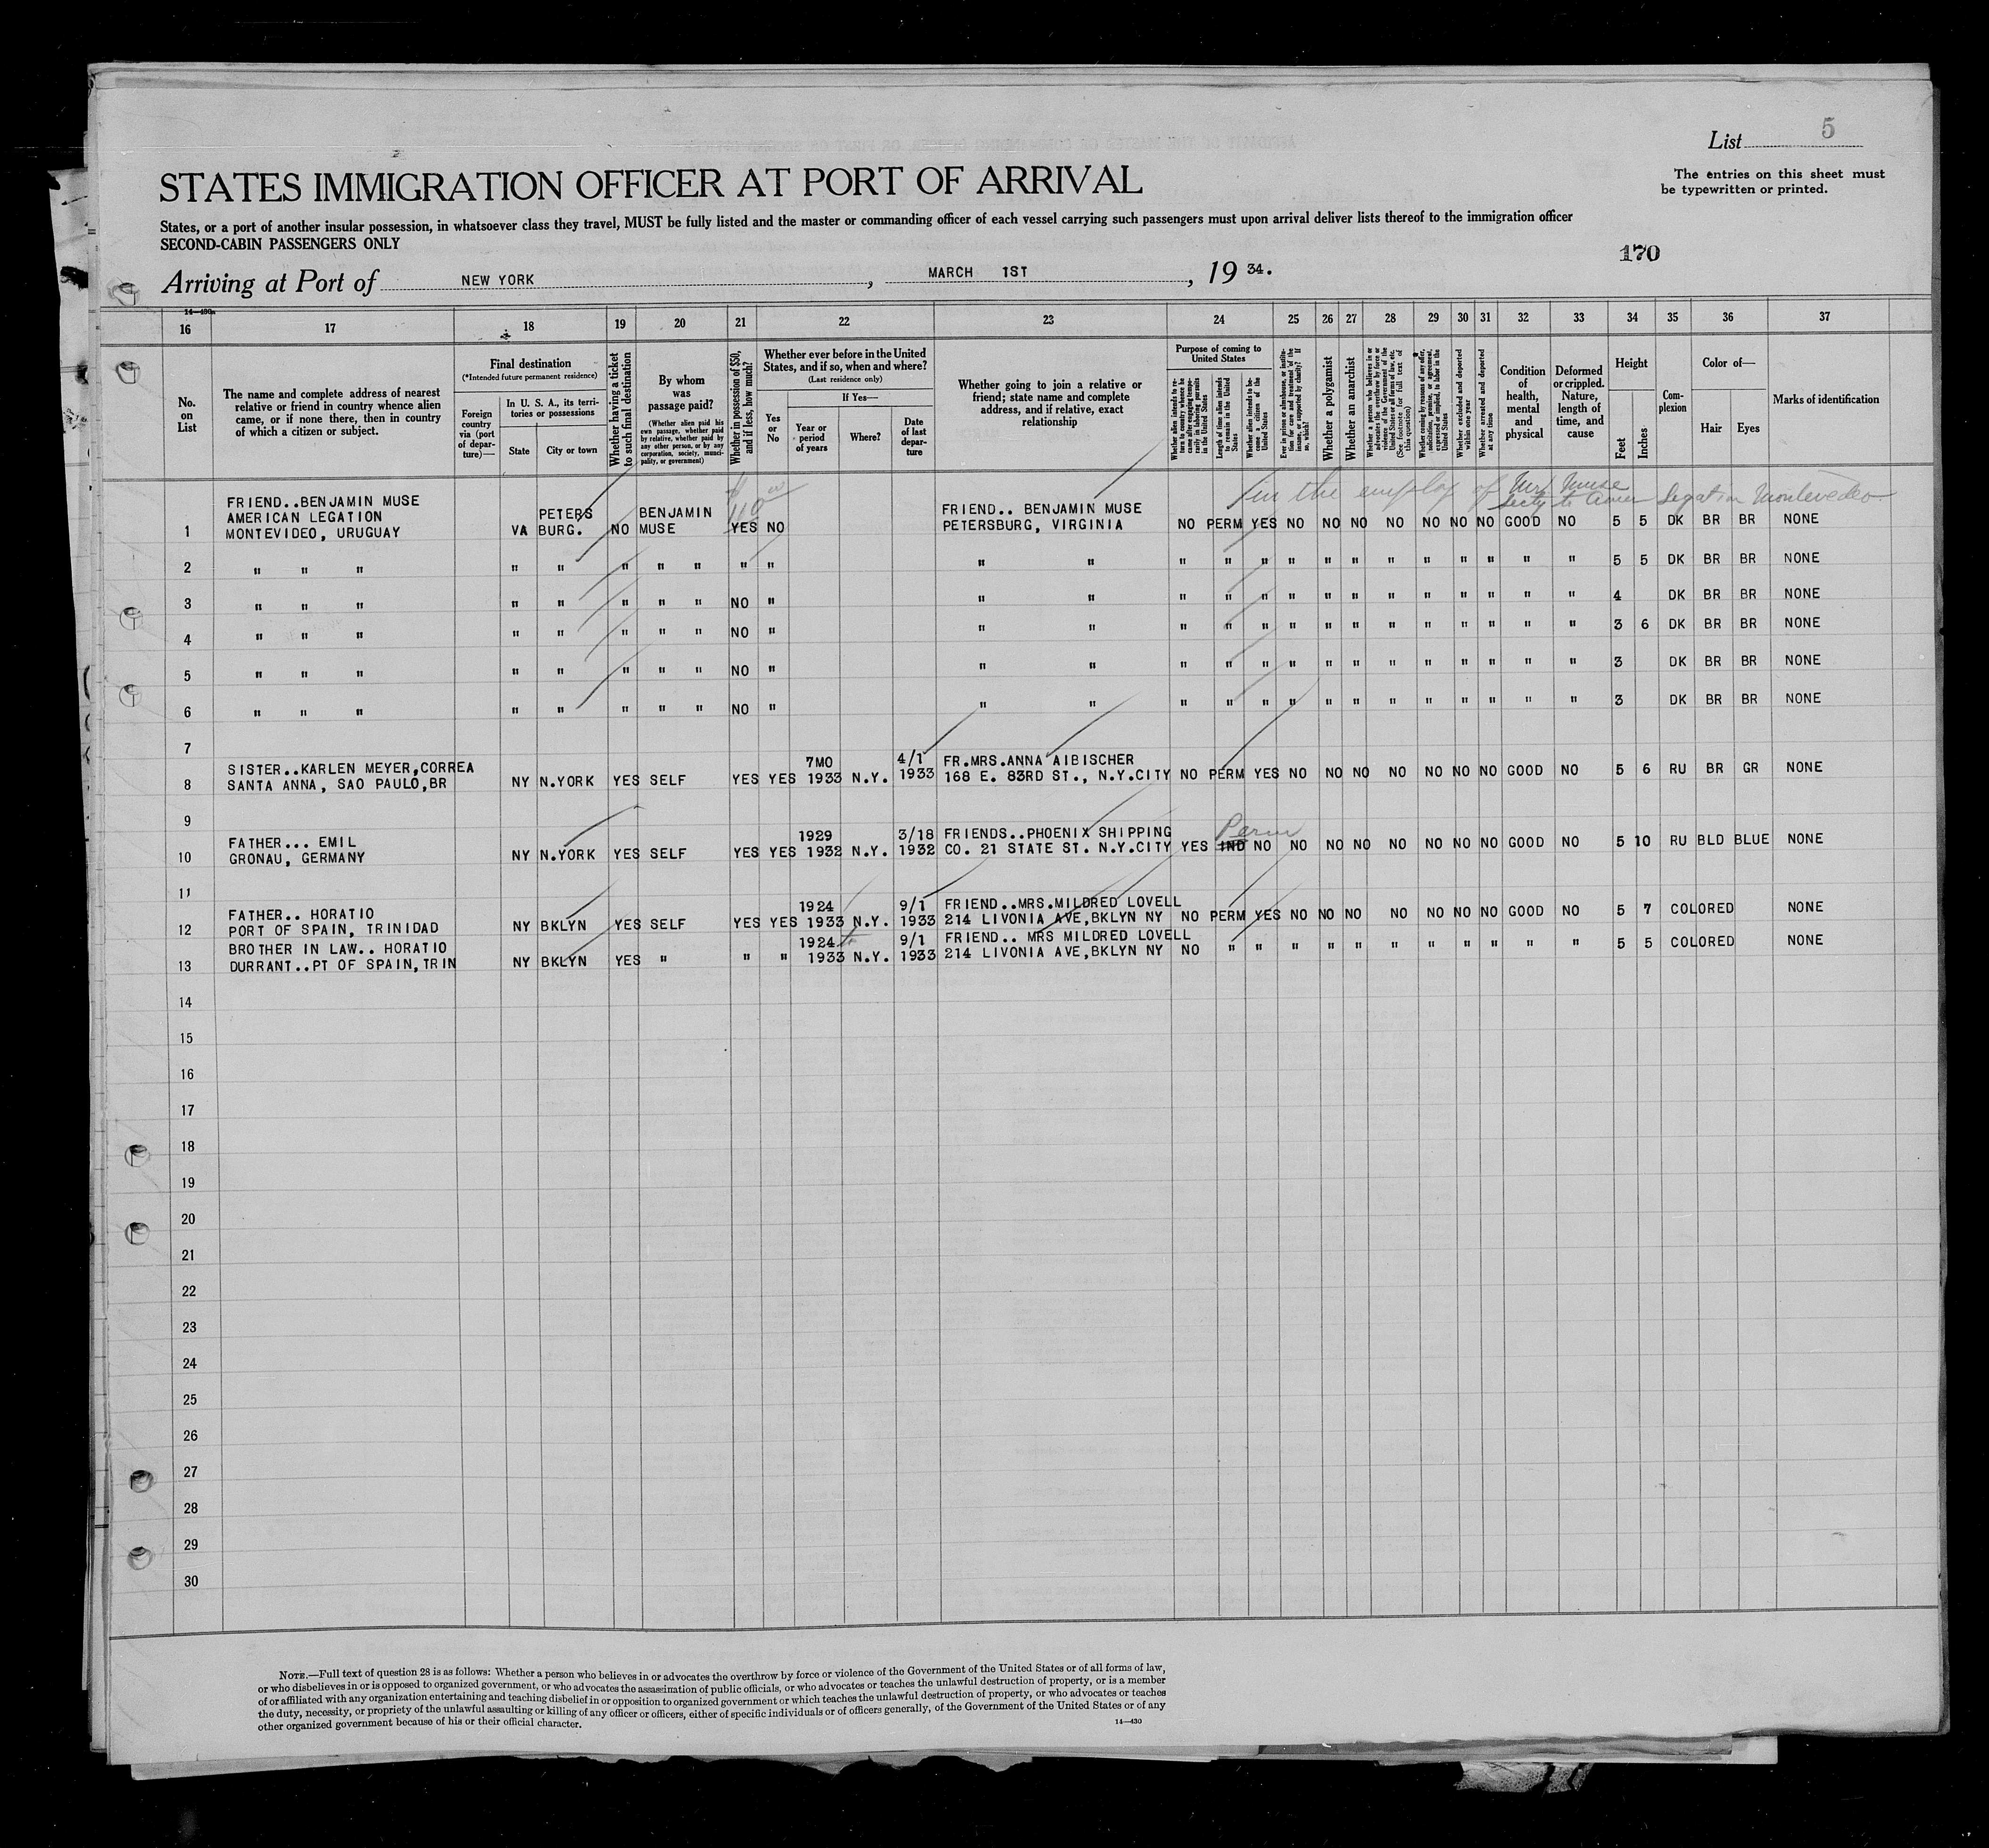 List 5
The entries on this sheet must
be typewritten or printed.
STATES IMMIGRATION OFFICER AT PORT OF ARRIVAL
States, or a port of another insular possession, in whatsoever class they travel, MUST be fully listed and the master or commanding officer of each vessel carrying such passengers must upon arrival deliver lists thereof to the immigration officer
SECOND-CABIN PASSENGERS ONLY
170
Arriving at Port of NEW YORK, MARCH 1ST, 19 34.
16 17 18 19 20 21 22 23 24 25 26 27 28 29 30 31 32 33 34 35 36 37
No. on List
The name and complete address of nearest
relative or friend in country whence alien
came, or if none there, then in country
of which a citizen or subject.
Final destination
(*Intended future permanent residence)
Foreign country via (port of depar-ture)—
In U. S. A., its terri-
tories or possessions
State
City or town
Whether having a ticket
to such final destination
By whom
was
passage paid?
(Whether alien paid his
own passage, whether paid
by relative, whether paid by
any other person, or by any
corporation, society, munici-
pality, or government)
Whether in possession of $50,
and if less, how much?
Whether ever before in the United
States, and if so, when and where?
(Last residence only)
Yes or No
If Yes—
Year or period of years
Where?
Date of last depar-ture
Whether going to join a relative or
friend; state name and complete
address, and if relative, exact
relationship
Purpose of coming to
United States
Length of time alien intends to remain in the United States
Whether alien intends to be-come a citizen of the United States
Whether a polygamist
Whether an anarchist
Whether excluded and deported within one year
Whether arrested and deported at any time
Condition of health, mental and physical
Deformed or crippled. Nature, length of time, and cause
Height
Feet
Inches
Com-plexion
Color of—
Hair
Eyes
Marks of identification
in the employ of Mr Muse
Secty to Amer Legation Montevedeo
1 FRIEND..BENJAMIN MUSE
AMERICAN LEGATION
MONTEVIDEO, URUGUAY VA PETERS
BURG. NO BENJAMIN
MUSE YES NO FRIEND.. BENJAMIN MUSE
PETERSBURG, VIRGINIA NO PERM YES NO NO NO NO NO NO NO GOOD NO 5 5 DK BR BR NONE
2 " " " " " " " " " " " " " " " " " " " " " " " " 5 5 DK BR BR NONE
3 " " " " " " " " NO " " " " " " " " " " " " " " " 4 DK BR BR NONE
4 " " " " " " " " NO " " " " " " " " " " " " " " " 3 6 DK BR BR NONE
5 " " " " " " " " NO " " " " " " " " " " " " " " " 3 DK BR BR NONE
6 " " " " " " " " NO " " " " " " " " " " " " " " " 3 DK BR BR NONE
7
8 SISTER..KARLEN MEYER,CORREA
SANTA ANNA, SAO PAULO,BR NY N.YORK YES SELF YES YES 7MO
1933 N.Y. 4/1
1933 FR.MRS.ANNA AIBISCHER
168 E. 83RD ST., N.Y.CITY NO PERM YES NO NO NO NO NO NO NO GOOD NO 5 6 RU BR GR NONE
9
10 FATHER... EMIL
GRONAU, GERMANY NY N.YORK YES SELF YES YES 1929
1932 N.Y. 3/18
1932 FRIENDS..PHOENIX SHIPPING
CO. 21 STATE ST. N.Y.CITY YES Perm
IND NO NO NO NO NO NO NO NO GOOD NO 5 10 RU BLD BLUE NONE
11
12 FATHER.. HORATIO
PORT OF SPAIN, TRINIDAD NY BKLYN YES SELF YES YES 1924
1933 N.Y. 9/1
1933 FRIEND..MRS.MILDRED LOVELL
214 LIVONIA AVE,BKLYN NY NO PERM YES NO NO NO NO NO NO NO GOOD NO 5 7 COLORED NONE
13 BROTHER IN LAW.. HORATIO
DURRANT..PT OF SPAIN,TRIN NY BKLYN YES " " " 1924 to
1933 N.Y. 9/1
1933 FRIEND.. MRS MILDRED LOVELL
214 LIVONIA AVE,BKLYN NY NO " " " " " " " " " " " 5 5 COLORED NONE
14
15
16
17
18
19
20
21
22
23
24
25
26
27
28
29
30
NOTE.—Full text of question 28 is as follows: Whether a person who believes in or advocates the overthrow by force or violence of the Government of the United States or of all forms of law,
or who disbelieves in or is opposed to organized government, or who advocates the assassination of public officials, or who advocates or teaches the unlawful destruction of property, or is a member
of or affiliated with any organization entertaining and teaching disbelief in or opposition to organized government or which teaches the unlawful destruction of property, or who advocates or teaches
the duty, necessity, or propriety of the unlawful assaulting or killing of any officer or officers, either of specific individuals or of officers generally, of the Government of the United States or of any
other organized government because of his or their official character.
14—430